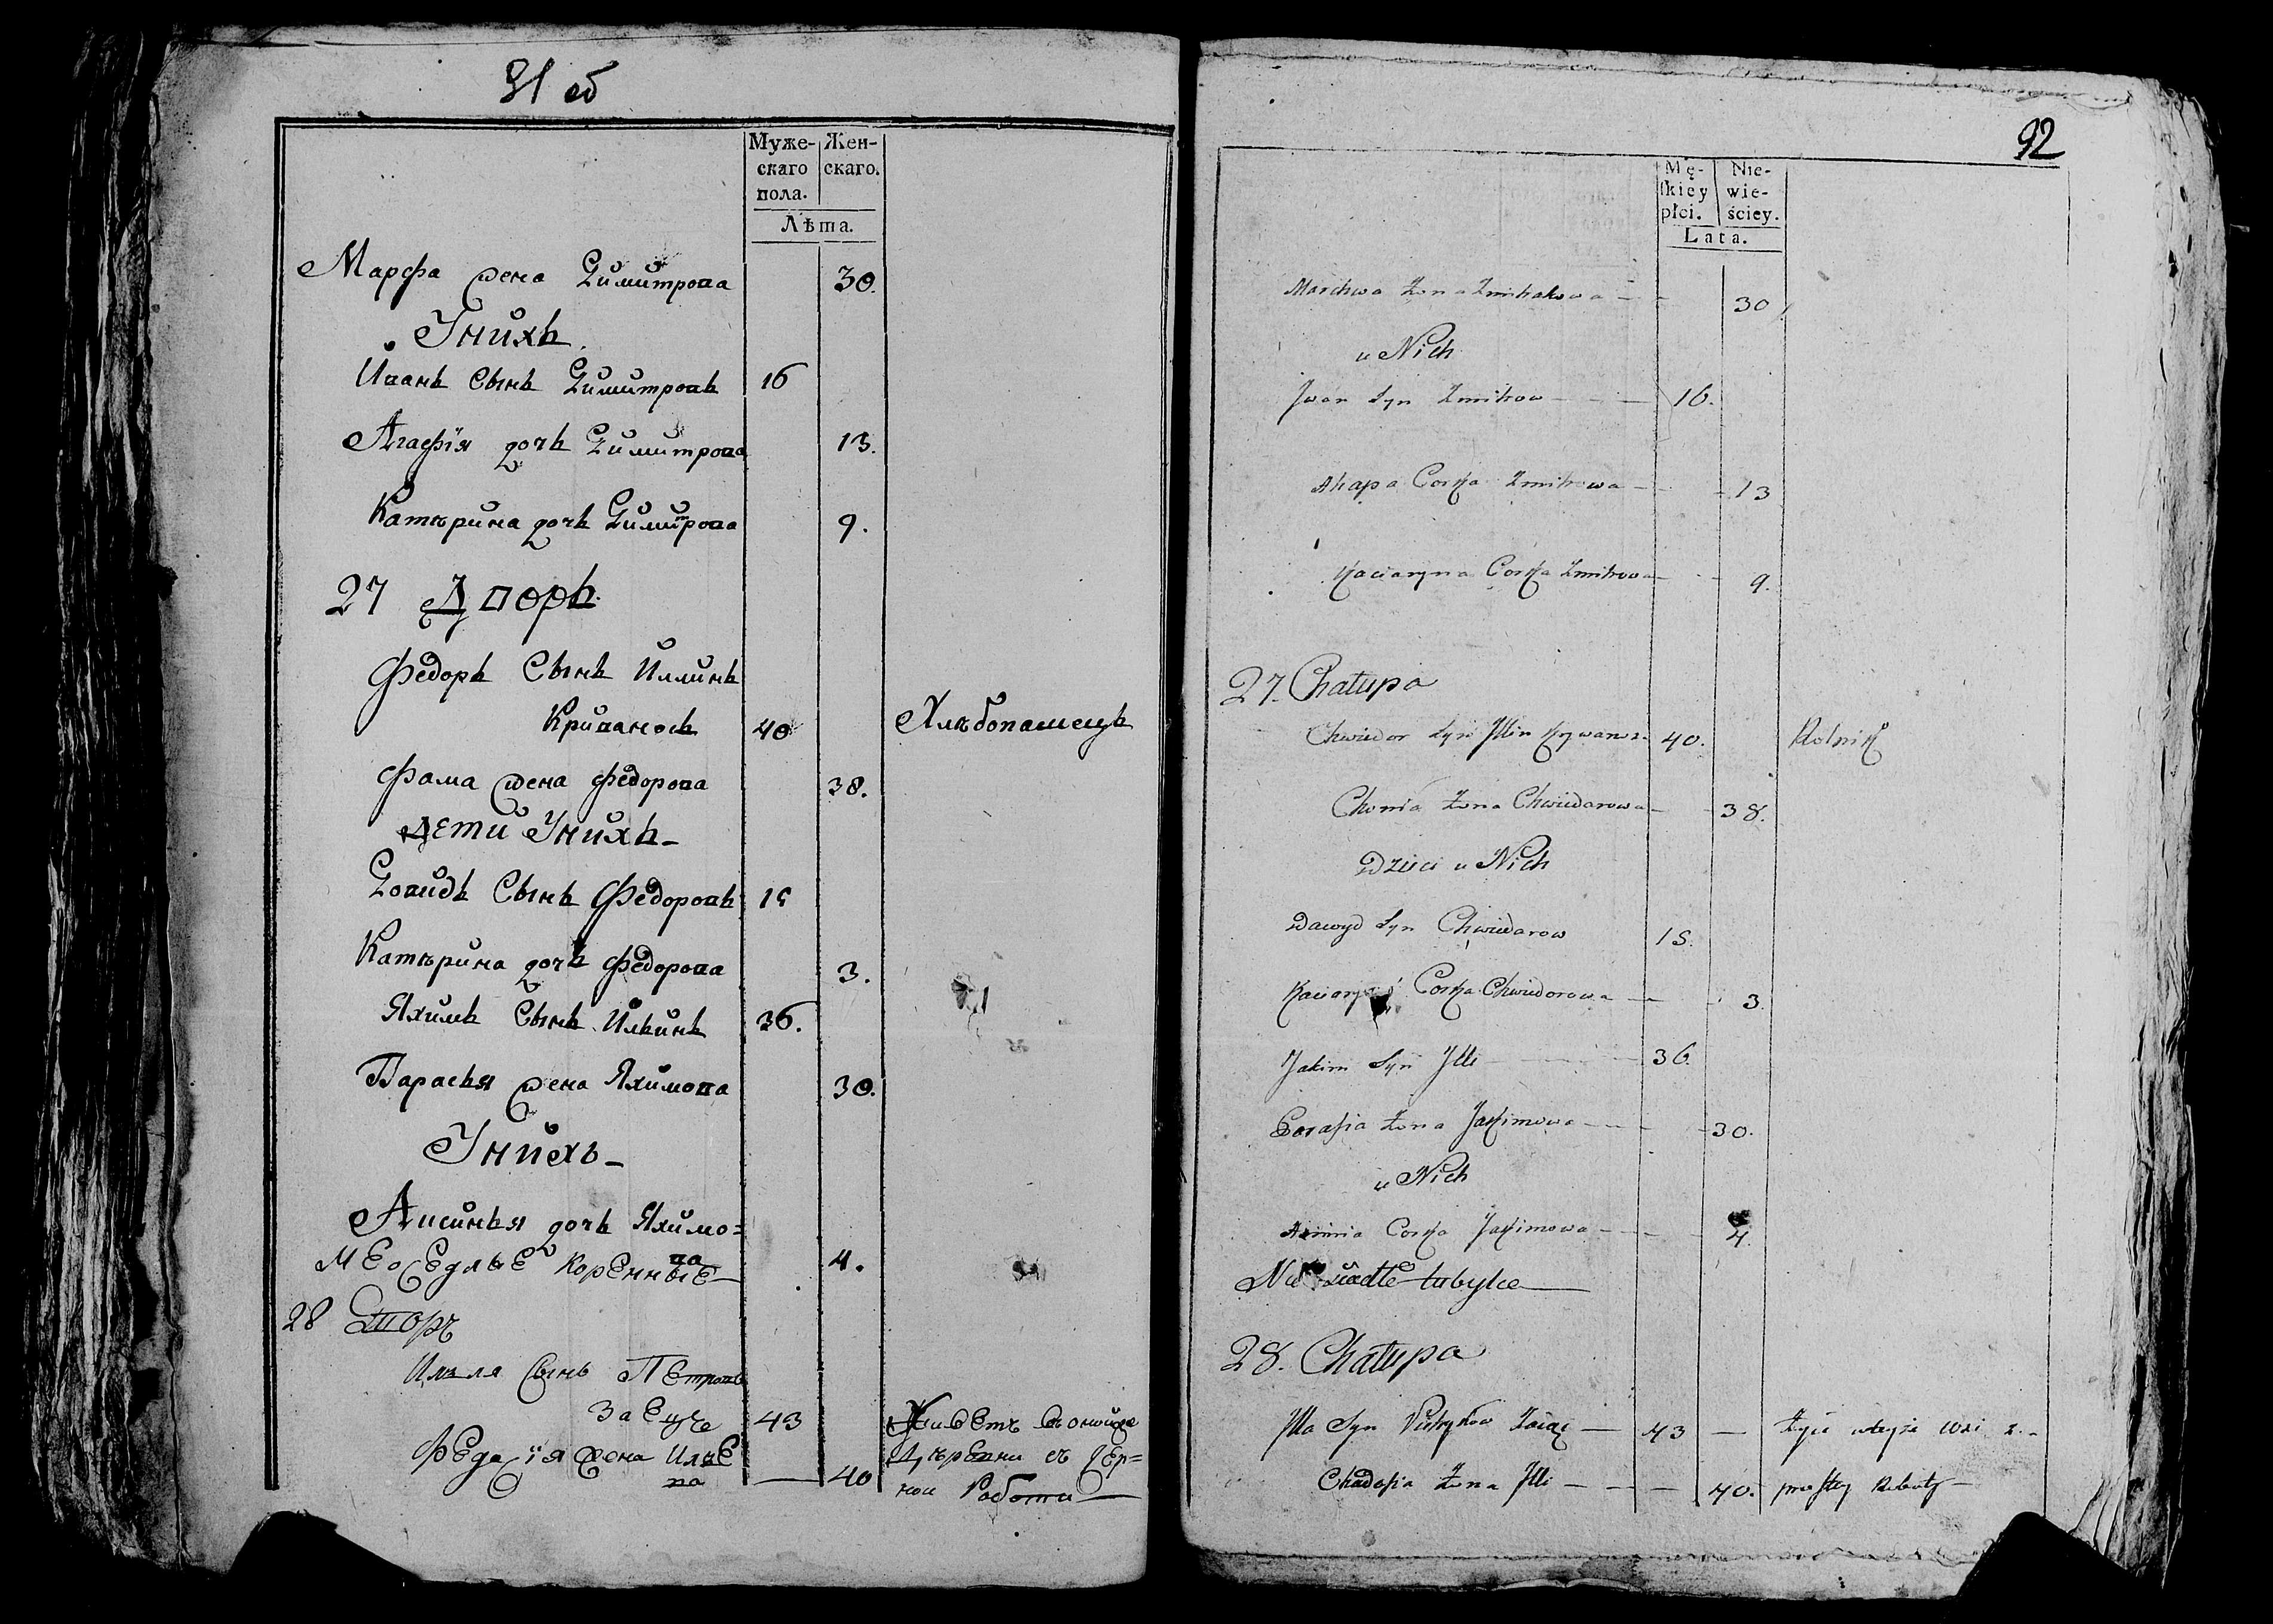 91 об
Муже-
скаго
пола.
Жен-
скаго.
Лѣта.
Марфа жена Димитрова 30.
Унихъ
Иванъ Сынъ Димитровъ 16
Агафія дочь Димитрова 13.
Катърина дочь Димитрова 9.
27 Дворъ
Федоръ Сынъ Иллинъ
Криваносъ 40 Хлѣбопашецъ
Фама жена Федорова 38.
Дети Унихъ
Довидъ Сынъ Федоровъ 15
Катърина дочь Федорова 3.
Яхимъ Сынъ Ильинъ 36.
Парасья жена Яхимова 30.
Унихъ
Аксинья дочь Яхимо=
ва 4.
Неоседлые коренные
28 Дворъ
Илья Сынъ Петровъ
Заецъ 43 Живетъ вонойже
Федосія жена Илье
ва 40 Дъревни съ Чер=
ной Работы
92
Mę-
skiey
płci.
Nie-
wie-
ściey.
Lata.
Marchwa Żona Zmitrakowa 30
u Nich
Jwan Syn Zmitrow 16.
Ahapa Corka Zmitrowa 13
Kaciaryna Corka Zmitrowa 9.
27. Chatupa
Chwiedor Syn Jllin Krywanos 40. Rolnik
Chomia Żona Chwiedarowa 38.
Dzieci u Nich
Dawyd Syn Chwiedarow 15.
Kaciaryna Corka Chwiedorowa 3.
Jakim Syn Jlli 36.
Parasia Żona Jakimowa 30.
u Nich
Axinia Corka Jakimowa 4.
Nie osiadłe tubylce
28. Chatupa
Jlla Syn Pietrykow Zaiąc 43 Żyie wteyże Wsi z
Chadosia Żona Jlli 40. prostey Roboty